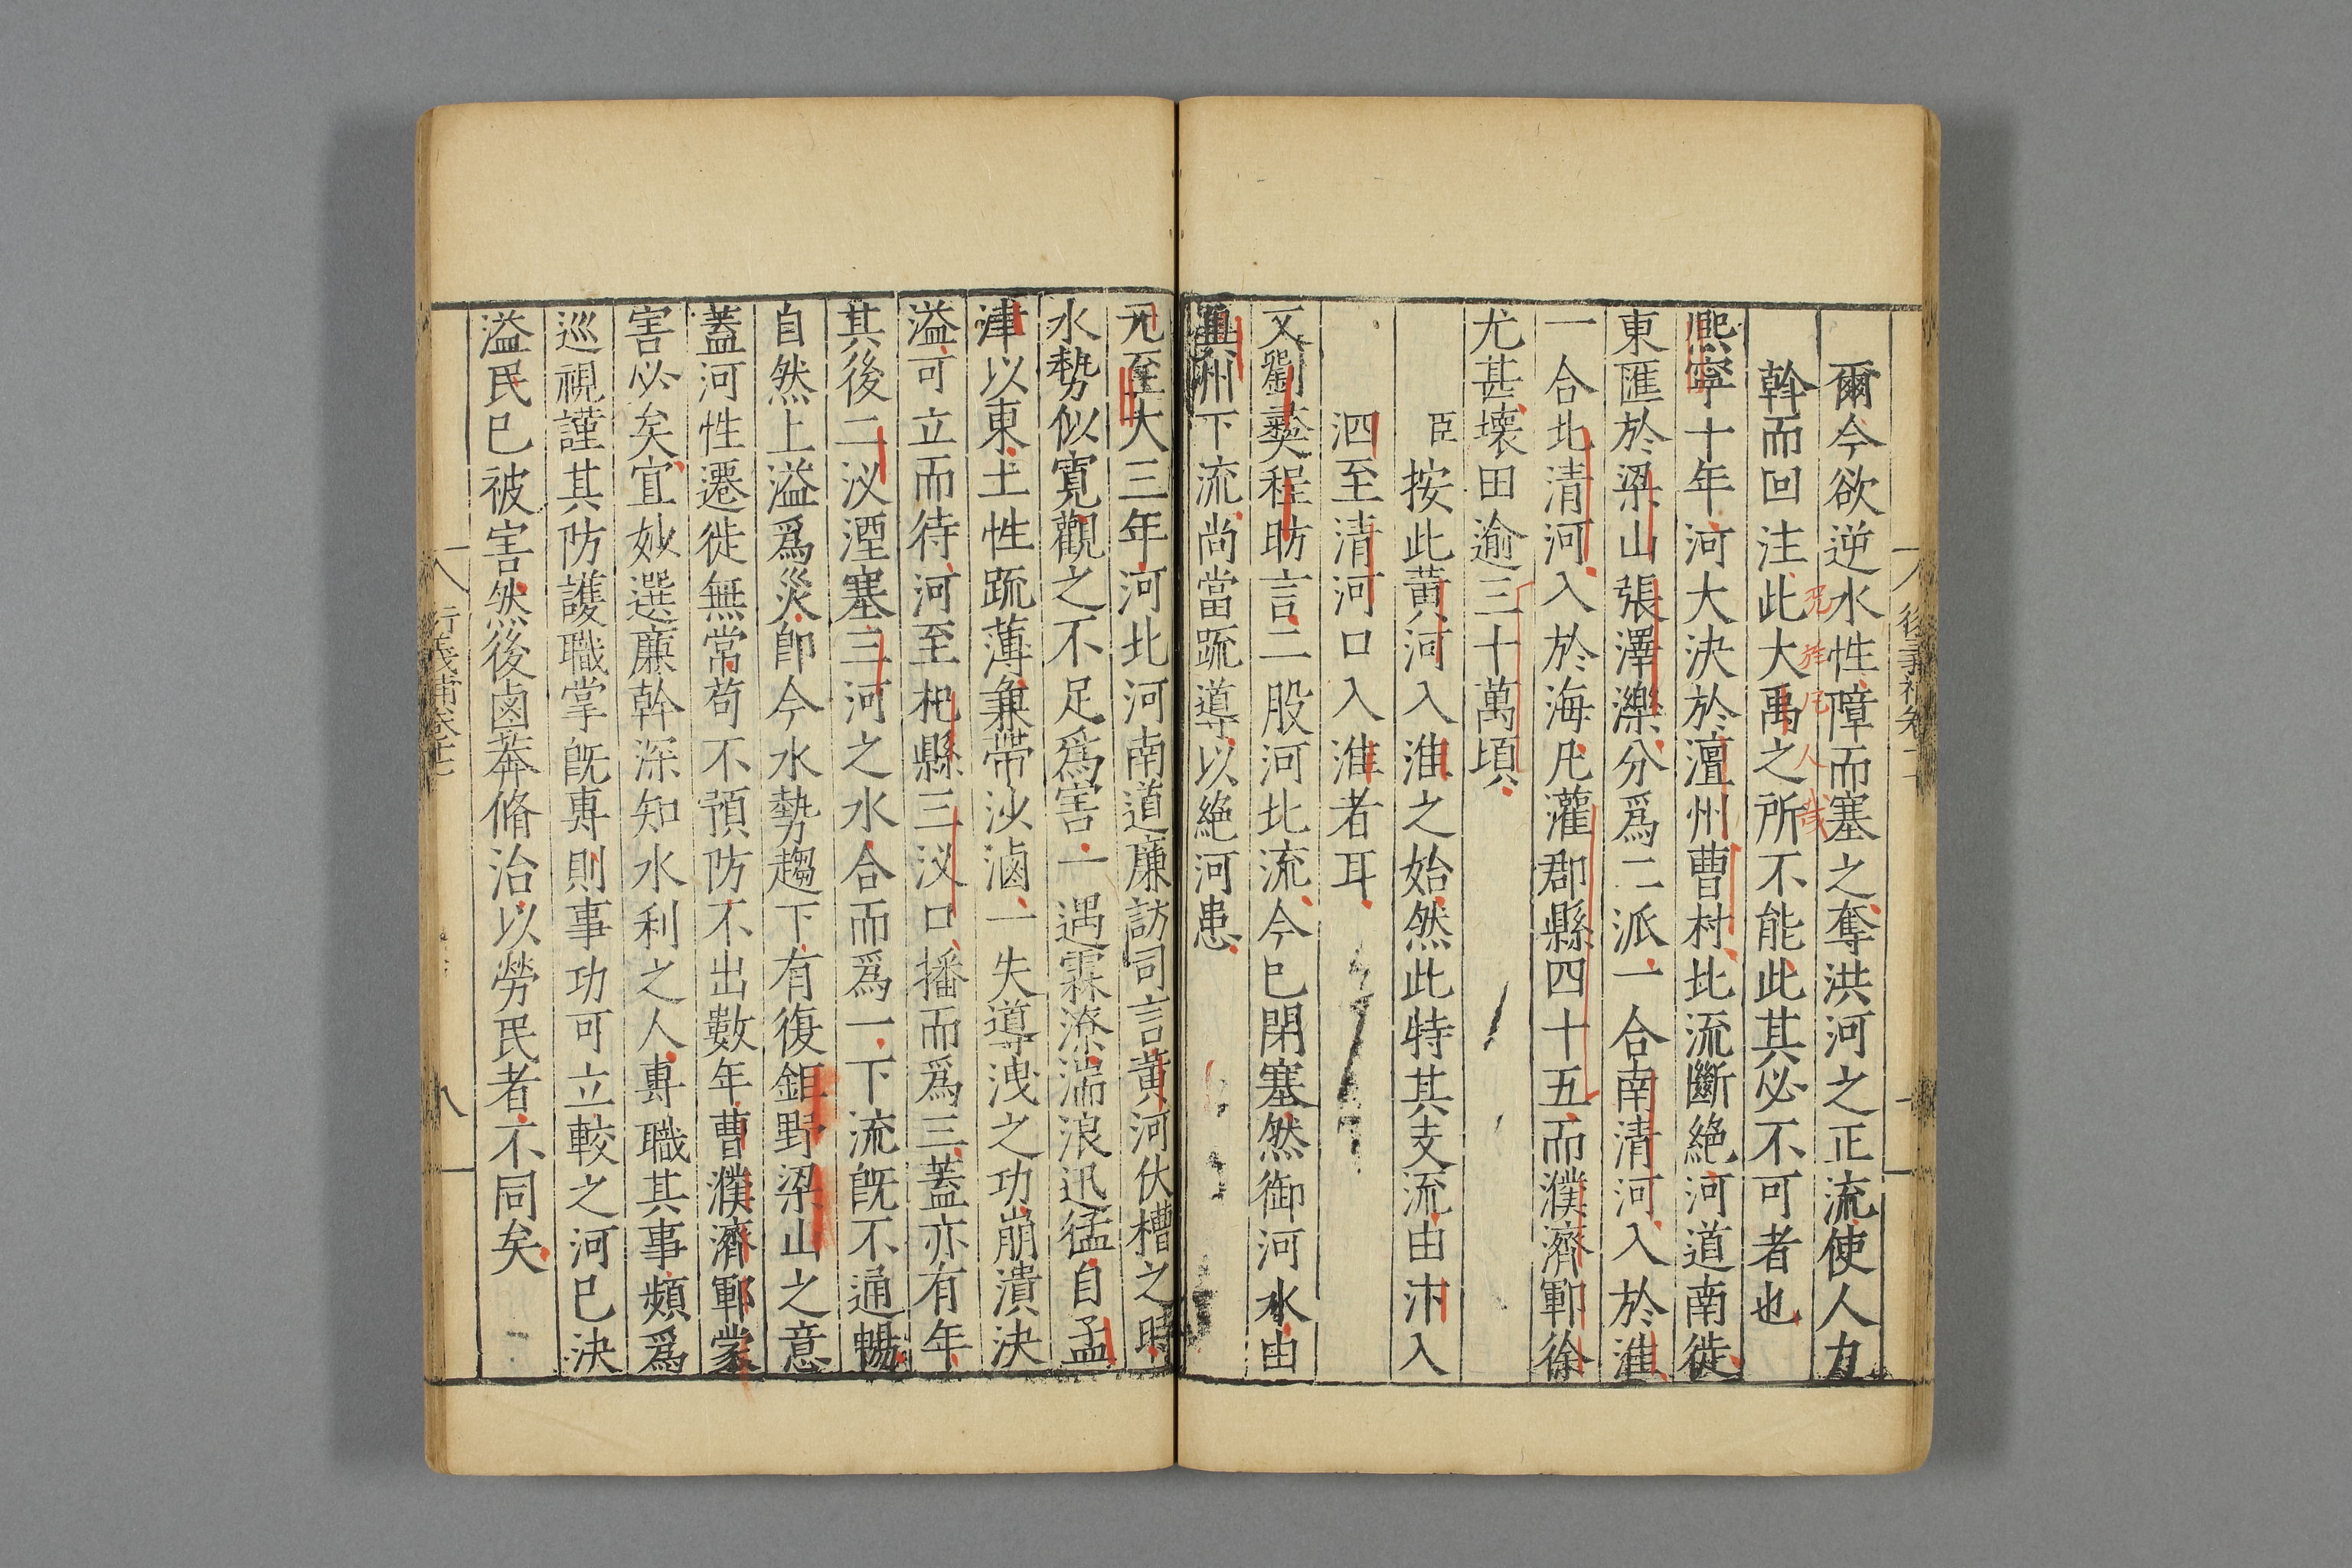 爾今欲逆水性障而塞之奪洪河之正流使人力
幹而回注此大禹之所不能此其必不可者也
况
人
哉
熙寧十年河大決於澶州曹村北流斷絶河道南徙
東匯於梁山張澤濼分爲二派一合南清河入於淮
一合北清河入於海凡灌郡縣四十五而濮濟鄆徐
尤甚壊田逾三十萬頃
臣按此黄河入淮之始然此特其支流由汴入
泗至清河口入淮者耳
又劉彛程昉言二股河北流今已閉塞然御河水由
州下流尚當疏導以絶河患
元至大三年河北河南道廉訪司言黄河伏槽之時
水勢似寛觀之不足爲害一遇霖潦湍浪迅猛自孟
津以東土性疏薄兼帶沙滷一失導洩之功崩潰決
溢可立而待河至杞縣三汊口播而爲三蓋亦有年
其後二汊湮塞三河之水合而爲一下流既不通暢
自然上溢爲災即今水勢趨下有復鉅野梁山之意
蓋河性遷徙無常苟不預防不出數年曹濮濟鄆蒙
害必矣宜妙選廉幹深知水利之人專職其事頻爲
巡視謹其防護職掌既專則事功可立較之河已決
溢民已被害然後鹵莽脩治以勞民者不同矣
行義補卷十七
八